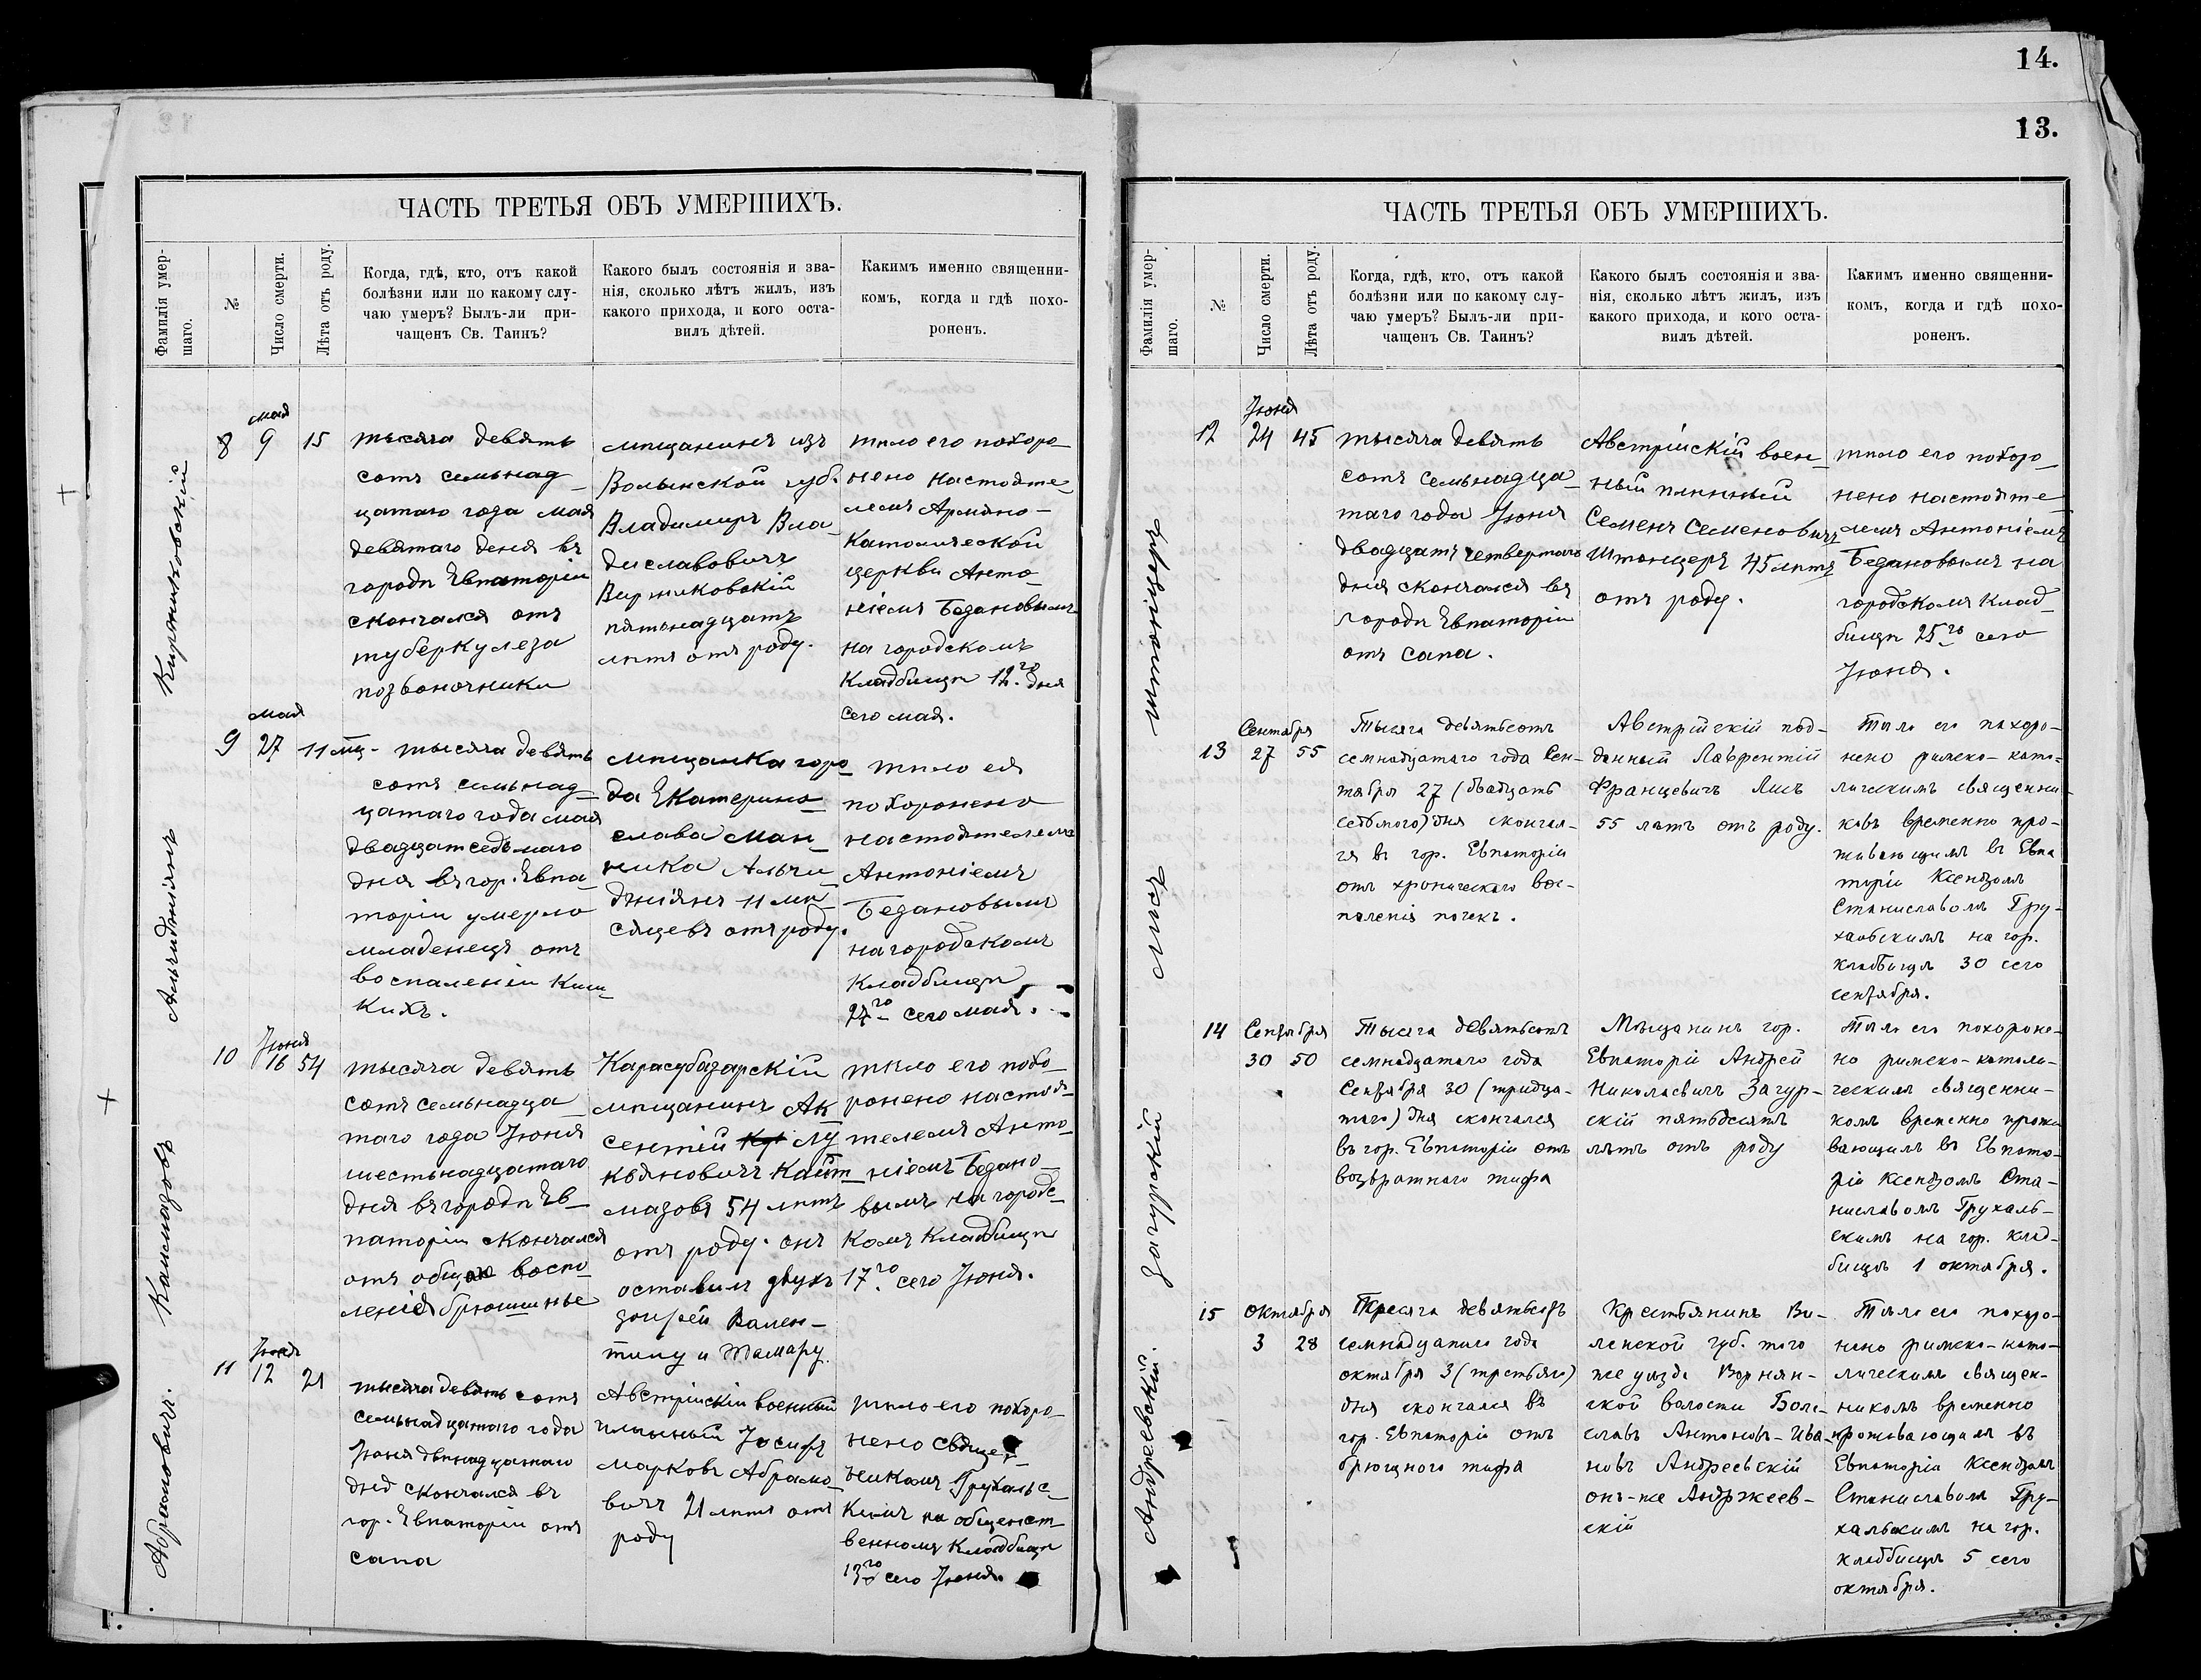 14.
13.
ЧАСТЬ ТРЕТЬЯ ОБЪ УМЕРШИХЪ.
Фамилія умер-
шаго.
№
Число смерти.
Лѣта отъ роду.
Когда, гдѣ, кто, отъ какой
болѣзни или по какому слу-
чаю умеръ? Былъ-ли при-
чащенъ Св. Таинъ?
Какого былъ состоянія и зва-
нія, сколько лѣтъ жилъ, изъ
какого прихода, и кого оста-
вилъ дѣтей.
Какимъ именно священни-
комъ, когда и гдѣ похо-
роненъ.
8
мая
9
15
тысяча девять
сотъ семьнад
цатаго года мая
девятаго деня въ
городѣ Евпаторіи
скончался отъ
туберкулеза
позвоночники
мѣщанинъ изъ
Волынской губ.
Владимиръ Вла
диславовичъ
пятьнадцатъ
лѣтъ отъ роду.
тѣло его похоро
нено настояте
лемъ Армяно-
Католической
церкви Анто
ніемъ Бедановымъ
на городскомъ
Кладбищѣ 12го дня
сего мая.
9
мая
27
11 мц-
тысяча девять
сотъ семьнад
цатаго года мая
двадцатседьмаго
дня въ гор. Евпа-
торіи умерло
младенецъ отъ
воспаленіи Киш
кихъ.
мѣщанка горо
да Екатерино
слава Ман
ника Альчи
дніянъ 11 мѣ
сяцевъ отъ роду.
тѣло ея
похоронено
настоятелемъ
Антоніемъ
Бедановымъ
на городскомъ
Кладбищѣ
27го сего мая.
Альчидніянъ
10
Іюня
16
54
тысяча девять
сотъ семьнадца
таго года Іюня
шестьнадцатаго
дня въ городѣ Ев-
паторіи скончался
отъ общаю воспо
ленія брюшинье
Карасубазарскій
мѣщанинъ Ак
сентій Лу
кьяновичъ Кайт
мазовъ 54 лѣтъ
отъ роду. онъ
оставилъ двухъ
дочерей Вален-
тину и Тамару.
тѣло его похо
ронено настоя
телемъ Анто
ніемъ Бедано
вымъ на городс
комъ Кладбищѣ
17го сего Іюня.
11
Іюня
12
21
тысяча девять сотъ
семьнадцатаго года
Іюня двѣнадцатаго
дня скончался въ
гор. Евпаторіи отъ
сапа
Австрійскій военный
плѣнный Іосифъ
Марковъ Абрамо
вичъ 21 лѣтъ отъ
роду
тѣло его похоро
нено священ
никомъ Грухальс
кимъ на общест
венномъ Кладбищѣ
13го сего Іюня.
Абрамовичъ.
ЧАСТЬ ТРЕТЬЯ ОБЪ УМЕРШИХЪ.
Фамилія умер-
шаго.
№
Число смерти.
Лѣта отъ роду.
Когда, гдѣ, кто, отъ какой
болѣзни или по какому слу-
чаю умеръ? Былъ-ли при-
чащенъ Св. Таинъ?
Какого былъ состоянія и зва-
нія, сколько лѣтъ жилъ, изъ
какого прихода, и кого оста-
вилъ дѣтей.
Какимъ именно священни-
комъ, когда и гдѣ похо-
роненъ.
12
Іюня
24
45
тысяча девять
сотъ семьнадца
таго года Іюня
двадцать четвертаго
дня скончался въ
городѣ Евпаторіи
отъ сапа.
Австрійскій воен
ный плѣнный
Семенъ Семеновичъ
Штанцеръ 45 лѣтъ
отъ роду.
тѣло его похоро
нено настояте
лемъ Антоніемъ
Бедановымъ на
городскомъ Клад
бищѣ 25го сего
Іюня.
13
Сентября
27
55
Тысяча девятьсотъ
семнадцатаго года Сен-
тября 27 (двадцать
седьмого) дня сконча-
ся въ гор. Евпаторіи
отъ хроническаго вос-
паленія почекъ.
Австрійскій под-
данный Лаврентій
Францевичъ Лисъ
55 лѣтъ отъ роду.
Тѣло его похоро-
нено римско-като-
лическимъ священни-
комъ временно про-
живающимъ въ Евпа
торіи Ксендзомъ
Станиславомъ Гру-
хальскимъ на гор.
кладбищѣ 30 сего
сентября.
Лисъ
14
Сентября
30
50
Тысяча девятьсотъ
семнадцатаго года
Сентября 30 (тридца-
таго) дня скончался
въ гор. Евпаторіи отъ
возвратнаго тифа
Мѣщанинъ гор.
Евпаторіи Андрей
Николаевичъ Загур-
скій пятьдесятъ
лѣтъ отъ роду
Тѣло его похороне-
но римско-католи-
ческимъ священни-
комъ временно прожи
вающимъ въ Евпато-
ріи Ксендзомъ Ста-
ниславомъ Грухаль-
скимъ на гор. клад-
бищѣ 1 октября.
Загурскій
15
Октября
3
28
Тысяча девятьсотъ
семнадцатаго года
октября 3 (третьяго)
дня скончался въ
гор. Евпаторіи отъ
брюшного тифа
Крестьянинъ Ви-
ленской губ. того
же уѣзда Ворнян-
ской волости Боле-
славъ Антоновъ-Ива-
новъ Андреевскій
онъ-же Анджеев-
скій
Тѣло его похоро-
нено римско-като-
лическимъ священ-
никомъ временно
проживающимъ въ
Евпаторіи Ксендзомъ
Станиславомъ Гру-
хальскимъ на гор.
кладбищѣ 5 сего
октября.
Андреевскій.